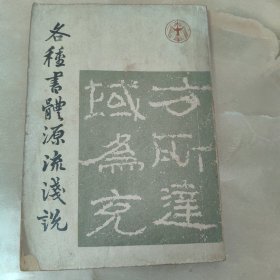 各種書體源流淺說
方所達
域為兗